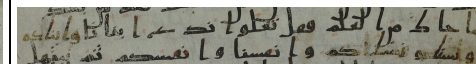 ما جاك من العلم فقل تعلوا ندع ابنانا وابناكم
ونسانا ونساكم وانفسنا وانفسكم ثم نبتهل